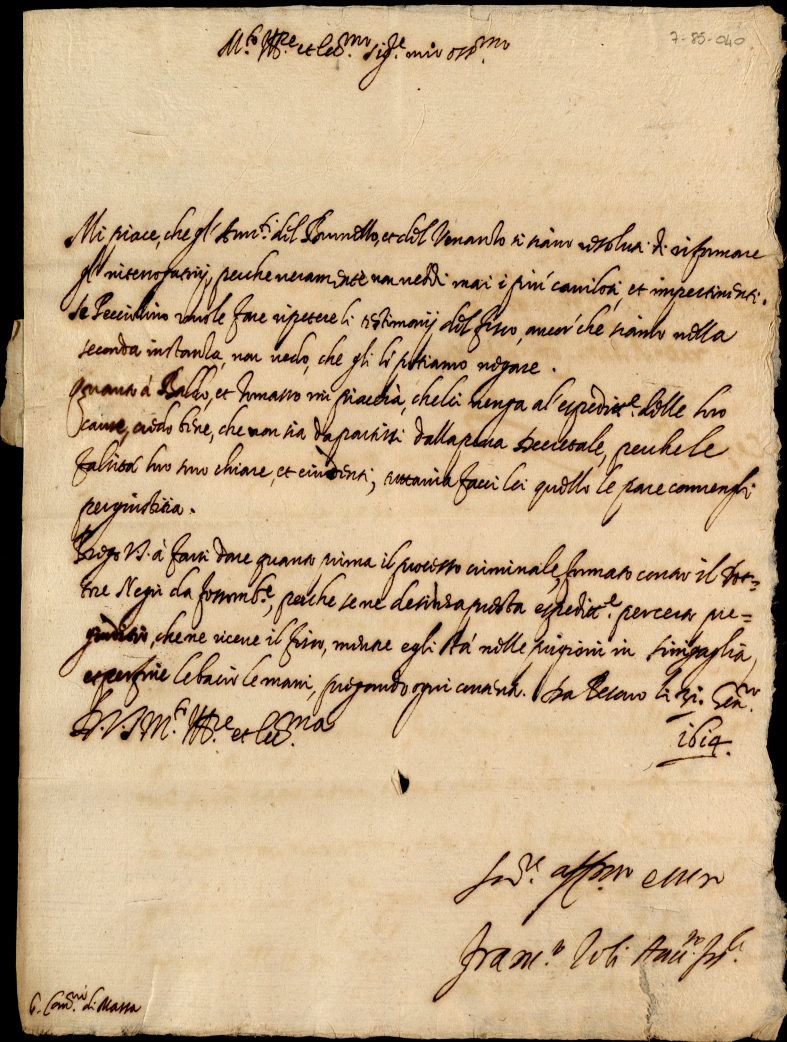 7-85-040
M.to Ill.re et Ecc.mo Sig.re mio oss.mo
Mi piace, che gl' Avv.ti del Brunetto, et del Venanto si siano resoluti di riformare
gl' interrogatorij, perche veramente non veddi mai i più cavilosi, et impertinenti.
Se Pecciolino vuole fare ripetere li testimonij del fisco, ancor che siamo nella
seconda instanza, non vedo, che gli li possiamo negare.
Quanto à Baldo, et Tomasso mi piacerà, che lei venga al' espedit.e delle loro
cause, credo bene, che non sia da partirsi dalla pena Decretale, perche le
falsità loro sono chiare, et evidenti, tuttavia facci lei quello le pare convenirsi
per giustitia.
Prego V.S. à farsi dare quanto prima il processo criminale, formato contro il Dot=
tore Negri da fossomb.e, perche se ne desidera presta espedit.e per certo pre=
giuditio, che ne riceve il fisco, mentre egli stà nelle prigioni in Sinigaglia,
et per fine le bacio le mani, pregandogli ogni contento. Da Pesaro li 31. Gen.ro
1614.
D. V.S. M.to Ill.re et Ecc.ma
Ser.re aff.mo e vero
Fran.co
S. Com.rio di Massa